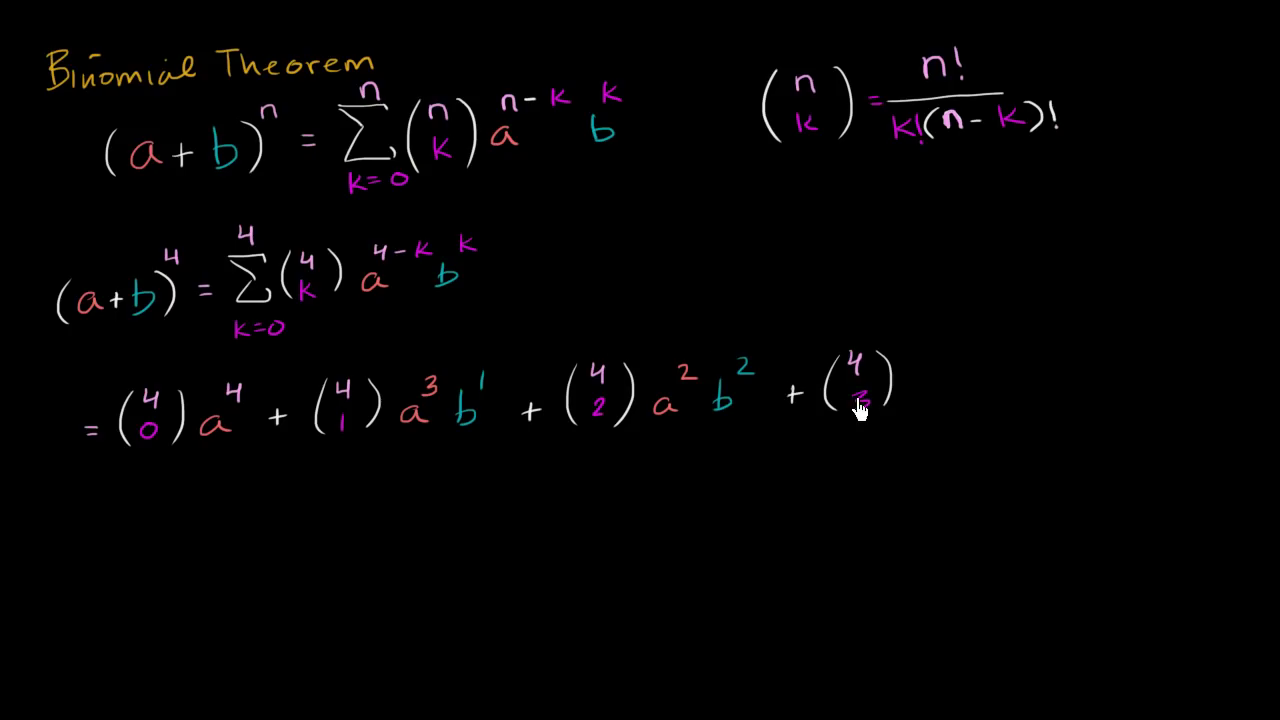 Binomial Theorem
(a + b)^n = \sum_{k=0}^{n} \binom{n}{k} a^{n-k} b^k
\binom{n}{k} = \frac{n!}{k!(n-k)!}
(a+b)^4 = \sum_{k=0}^{4} \binom{4}{k} a^{4-k} b^k
= \binom{4}{0} a^4 + \binom{4}{1} a^3 b^1 + \binom{4}{2} a^2 b^2 + \binom{4}{3}